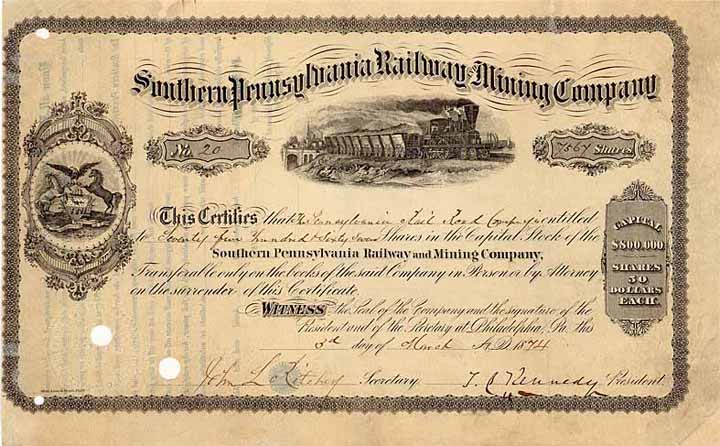 Southern Pennsylvania Railway and Mining Company
No. 20
7567 Shares
This Certifies that The Pennsylvania Rail Road Company is entitled
to Seventy five hundred & Sixty Seven Shares in the Capital Stock of the
Southern Pennsylvania Railway and Mining Company,
Transferable only on the books of the said Company in Person or by Attorney
on the surrender of this Certificate.
CAPITAL
$800,000
SHARES
50
DOLLARS
EACH.
WITNESS the Seal of the Company and the signature of the
President and of the Secretary at Philadelphia, Pa. this
3d day of March A.D. 1874
John Secretary.
T. B. Kennedy President.